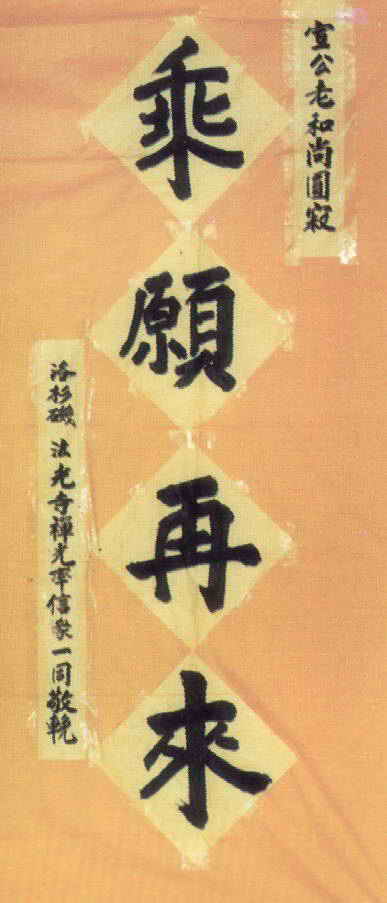 宣公老和尚圓寂
乘願再來
洛杉磯 法光寺禪光率信眾一同敬輓